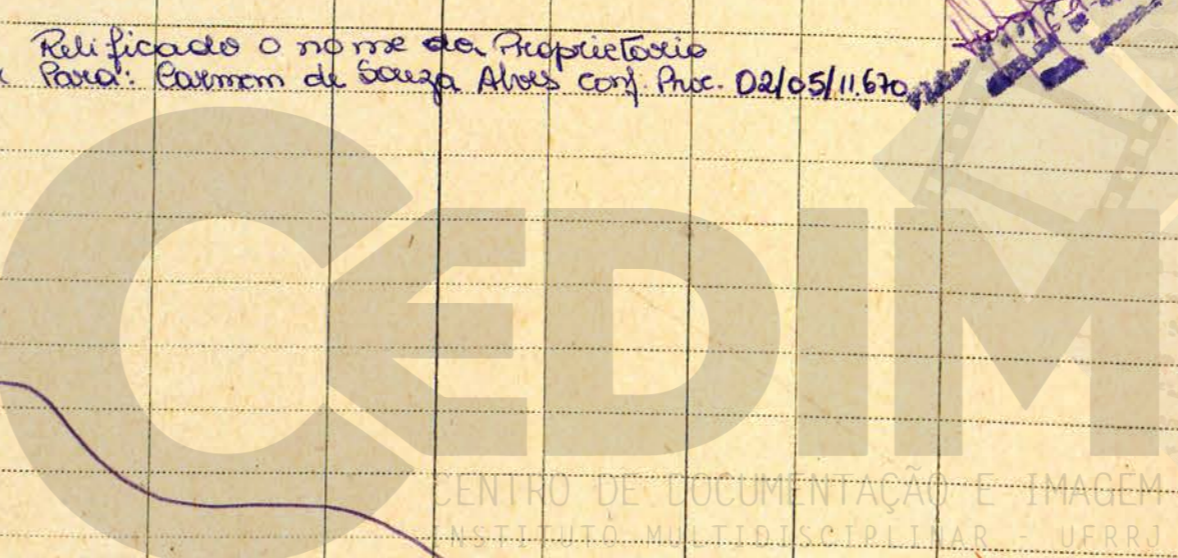 Retificado o nome da Proprietario
Para: Carmem de Souza Alves conf. Proc. 02/05/11.670
CEDIM
CENTRO DE DOCUMENTAÇÃO E IMAGEM
INSTITUTO MULTIDISCIPLINAR - UFRRJ